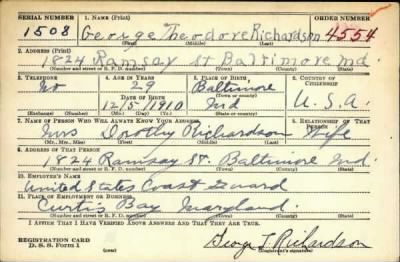 SERIAL NUMBER 1. NAME (Print) ORDER NUMBER
1508 George Theodore Richardson 4554
(First) (Middle) (Last)
2. ADDRESS (Print)
1824 Ramsay St Baltimore Md
(Number and street or R. F. D. number) (Town) (County) (State)
3. TELEPHONE 4. AGE IN YEARS 5. PLACE OF BIRTH 6. COUNTRY OF CITIZENSHIP
No 29 Baltimore
DATE OF BIRTH (Town or county)
12/5/1910 Md U.S.A.
(Exchange) (Number) (Mo.) (Day) (Yr.) (State or country)
7. NAME OF PERSON WHO WILL ALWAYS KNOW YOUR ADDRESS 8. RELATIONSHIP OF THAT PERSON
Mrs Dorothy Richardson Wife
(Mr., Mrs., Miss) (First) (Middle) (Last)
9. ADDRESS OF THAT PERSON
1824 Ramsay St. Baltimore Md.
(Number and street or R. F. D. number) (Town) (County) (State)
10. EMPLOYER'S NAME
United States Coast Guard
11. PLACE OF EMPLOYMENT OR BUSINESS
Curtis Bay Maryland
(Number and street or R. F. D. number) (Town) (County) (State)
I AFFIRM THAT I HAVE VERIFIED ABOVE ANSWERS AND THAT THEY ARE TRUE.
REGISTRATION CARD
D. S. S. Form 1 (over) George T Richardson
(Registrant's signature)